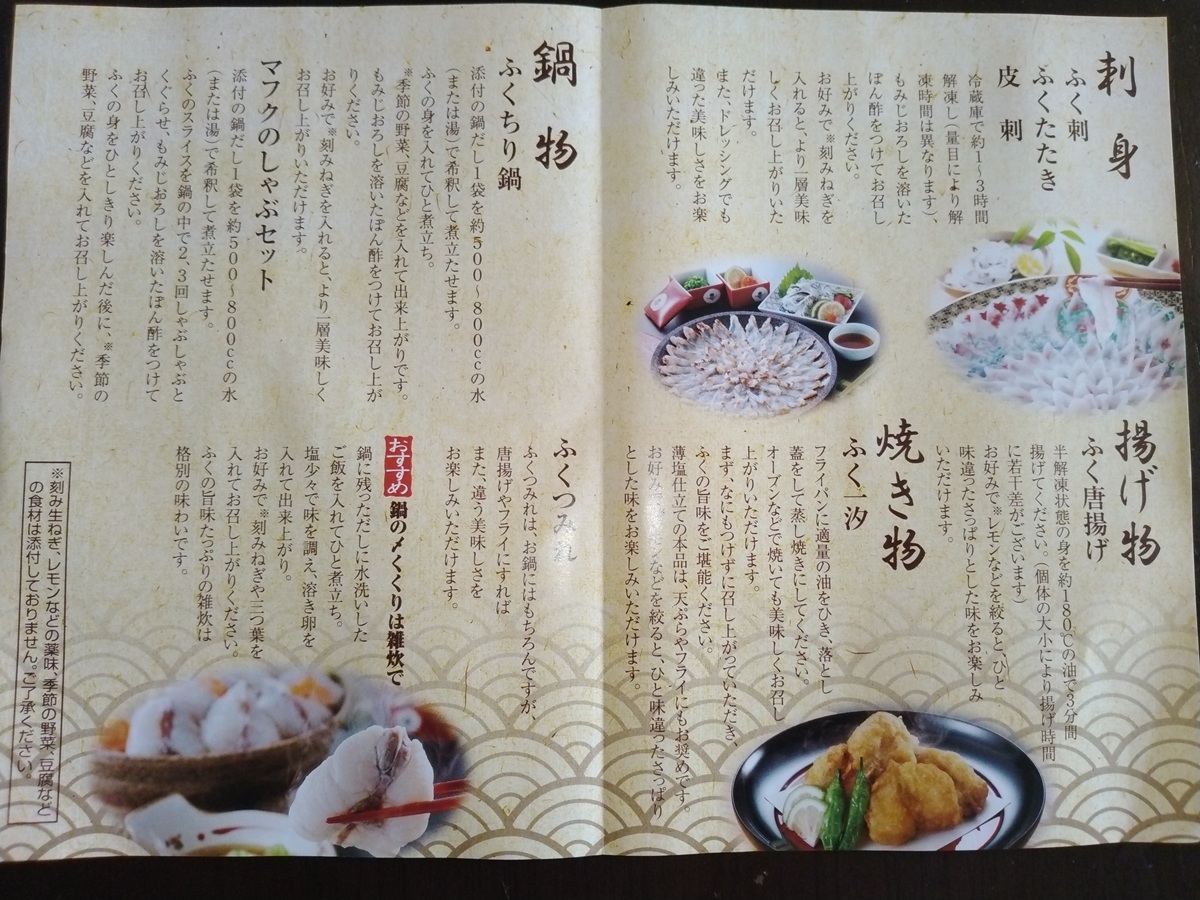 刺身
ふく刺
ふくたたき
皮刺
冷蔵庫で約1～3時間
解凍し(量目により解
凍時間は異なります)、
もみじおろしを溶いた
ぽん酢をつけてお召し
上がりください。
お好みで※刻みねぎを
入れると、より一層美味
しくお召し上がりいた
だけます。
また、ドレッシングでも
違った美味しさをお楽
しみいただけます。
揚げ物
ふく唐揚げ
半解凍状態の身を約180℃の油で3分間
揚げてください。(個体の大小により揚げ時間
に若干差がございます)
お好みで※レモンなどを絞ると、ひと
味違ったさっぱりとした味をお楽しみ
いただけます。
焼き物
ふく一汐
フライパンに適量の油をひき、落とし
蓋をして蒸し焼きにしてください。
オーブンなどで焼いても美味しくお召し
上がりいただけます。
まず、なにもつけずに召し上がっていただき、
ふくの旨味をご堪能ください。
薄塩仕立ての本品は、天ぷらやフライにもお奨めです。
お好みで などを絞ると、ひと味違ったさっぱり
とした味をお楽しみいただけます。
鍋物
ふくちり鍋
添付の鍋だし1袋を約500～800ccの水
(または湯)で希釈して煮立たせます。
ふくの身を入れてひと煮立ち。
※季節の野菜、豆腐などを入れて出来上がりです。
もみじおろしを溶いたぽん酢をつけてお召し上が
りください。
お好みで※刻みねぎを入れると、より一層美味しく
お召し上がりいただけます。
マフクのしゃぶセット
添付の鍋だし1袋を約500～800ccの水
(または湯)で希釈して煮立たせます。
ふくのスライスを鍋の中で2、3回しゃぶしゃぶと
くぐらせ、もみじおろしを溶いたぽん酢をつけて
お召し上がりください。
ふくの身をひとしきり楽しんだ後に、※季節の
野菜、豆腐などを入れてお召し上がりください。
ふくつみれ
ふくつみれは、お鍋にはもちろんですが、
唐揚げやフライにすれば
また、違う美味しさを
お楽しみいただけます。
おすすめ 鍋の〆くくりは雑炊で
鍋に残っただしに水洗いした
ご飯を入れてひと煮立ち。
塩少々で味を調え、溶き卵を
入れて出来上がり。
お好みで※刻みねぎや三つ葉を
入れてお召し上がりください。
ふくの旨味たっぷりの雑炊は
格別の味わいです。
※刻み生ねぎ、レモンなどの薬味、季節の野菜、豆腐など
の食材は添付しておりません。ご了承ください。